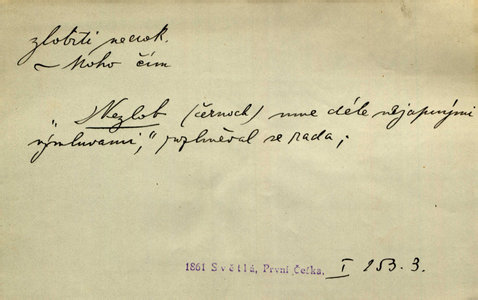 zlobiti nedok.
~ koho čím
„Nezlob (černoch) mne déle nejapnými
výmluvami," rozhněval se rada;
1861 Světlá, První Češka, I 153. 3.